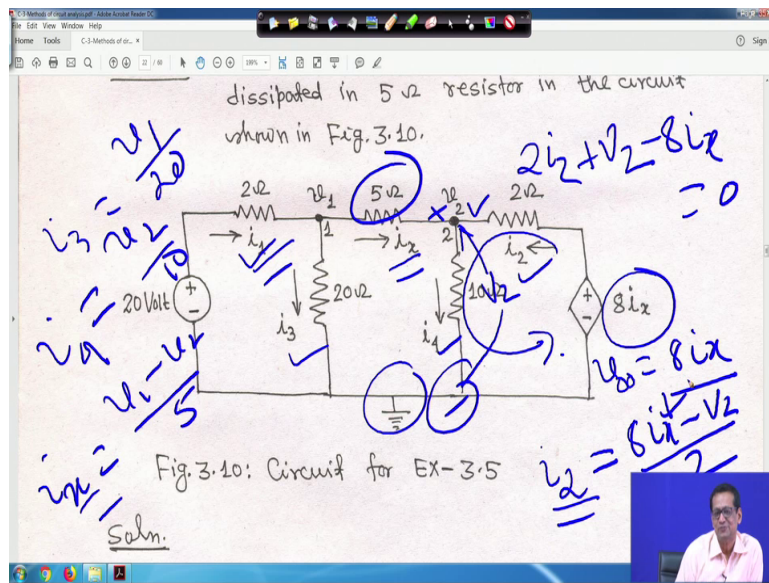 C-3-Methods of circuit analysis.pdf - Adobe Acrobat Reader DC
File Edit View Window Help
Home Tools C-3-Methods of cir... × Sign
22 / 60
dissipated in 5 Ω resistor in the circuit
shown in Fig. 3.10.
v1/20
2i2+V2-8ix
= 0
2Ω v1 5Ω v2 2Ω
i1 1 ix 2 i2
i3 = v2/10
20 Volt 20Ω 10Ω 8ix
i3 i4
v2
ix = v1-v2/5
v80 = 8ix
i2 = 8ix-V2/2
ix =
Fig. 3.10: Circuit for EX-3.5
Soln.